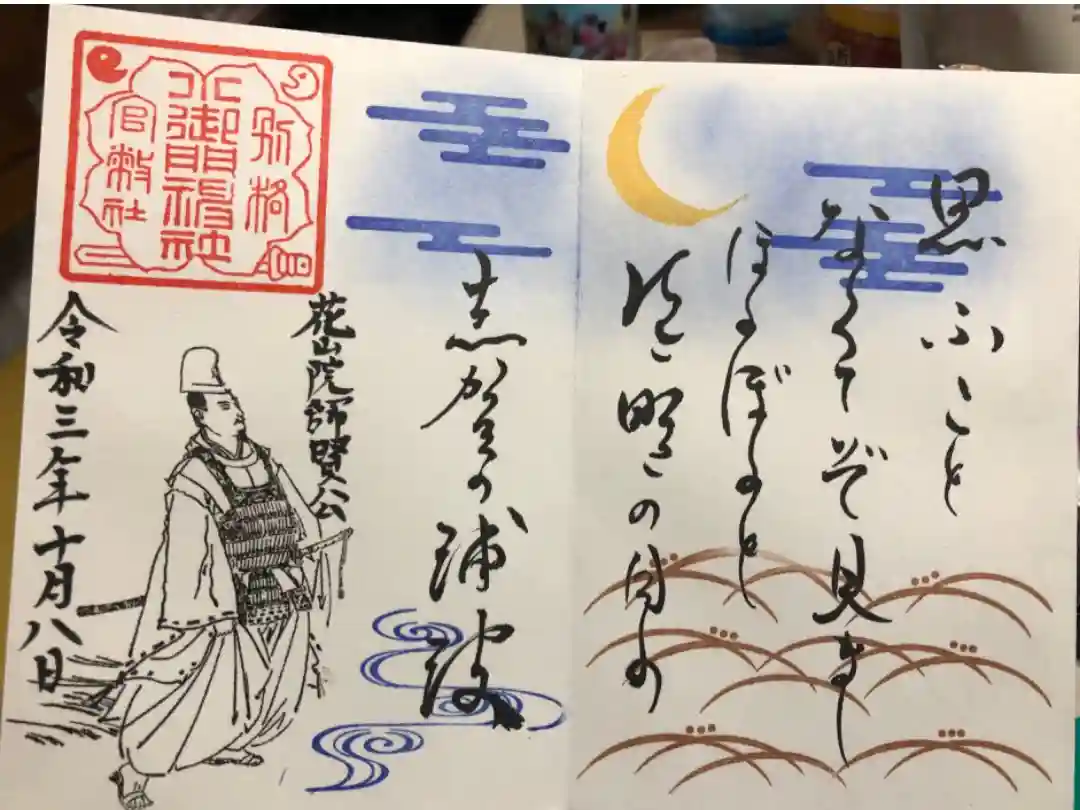 思ふこと
なくてぞ見まし
ほのぼのと
有明の月の
志賀の浦波
花山院師賢公
別格
小御門神社
官幣社
令和三年十月八日